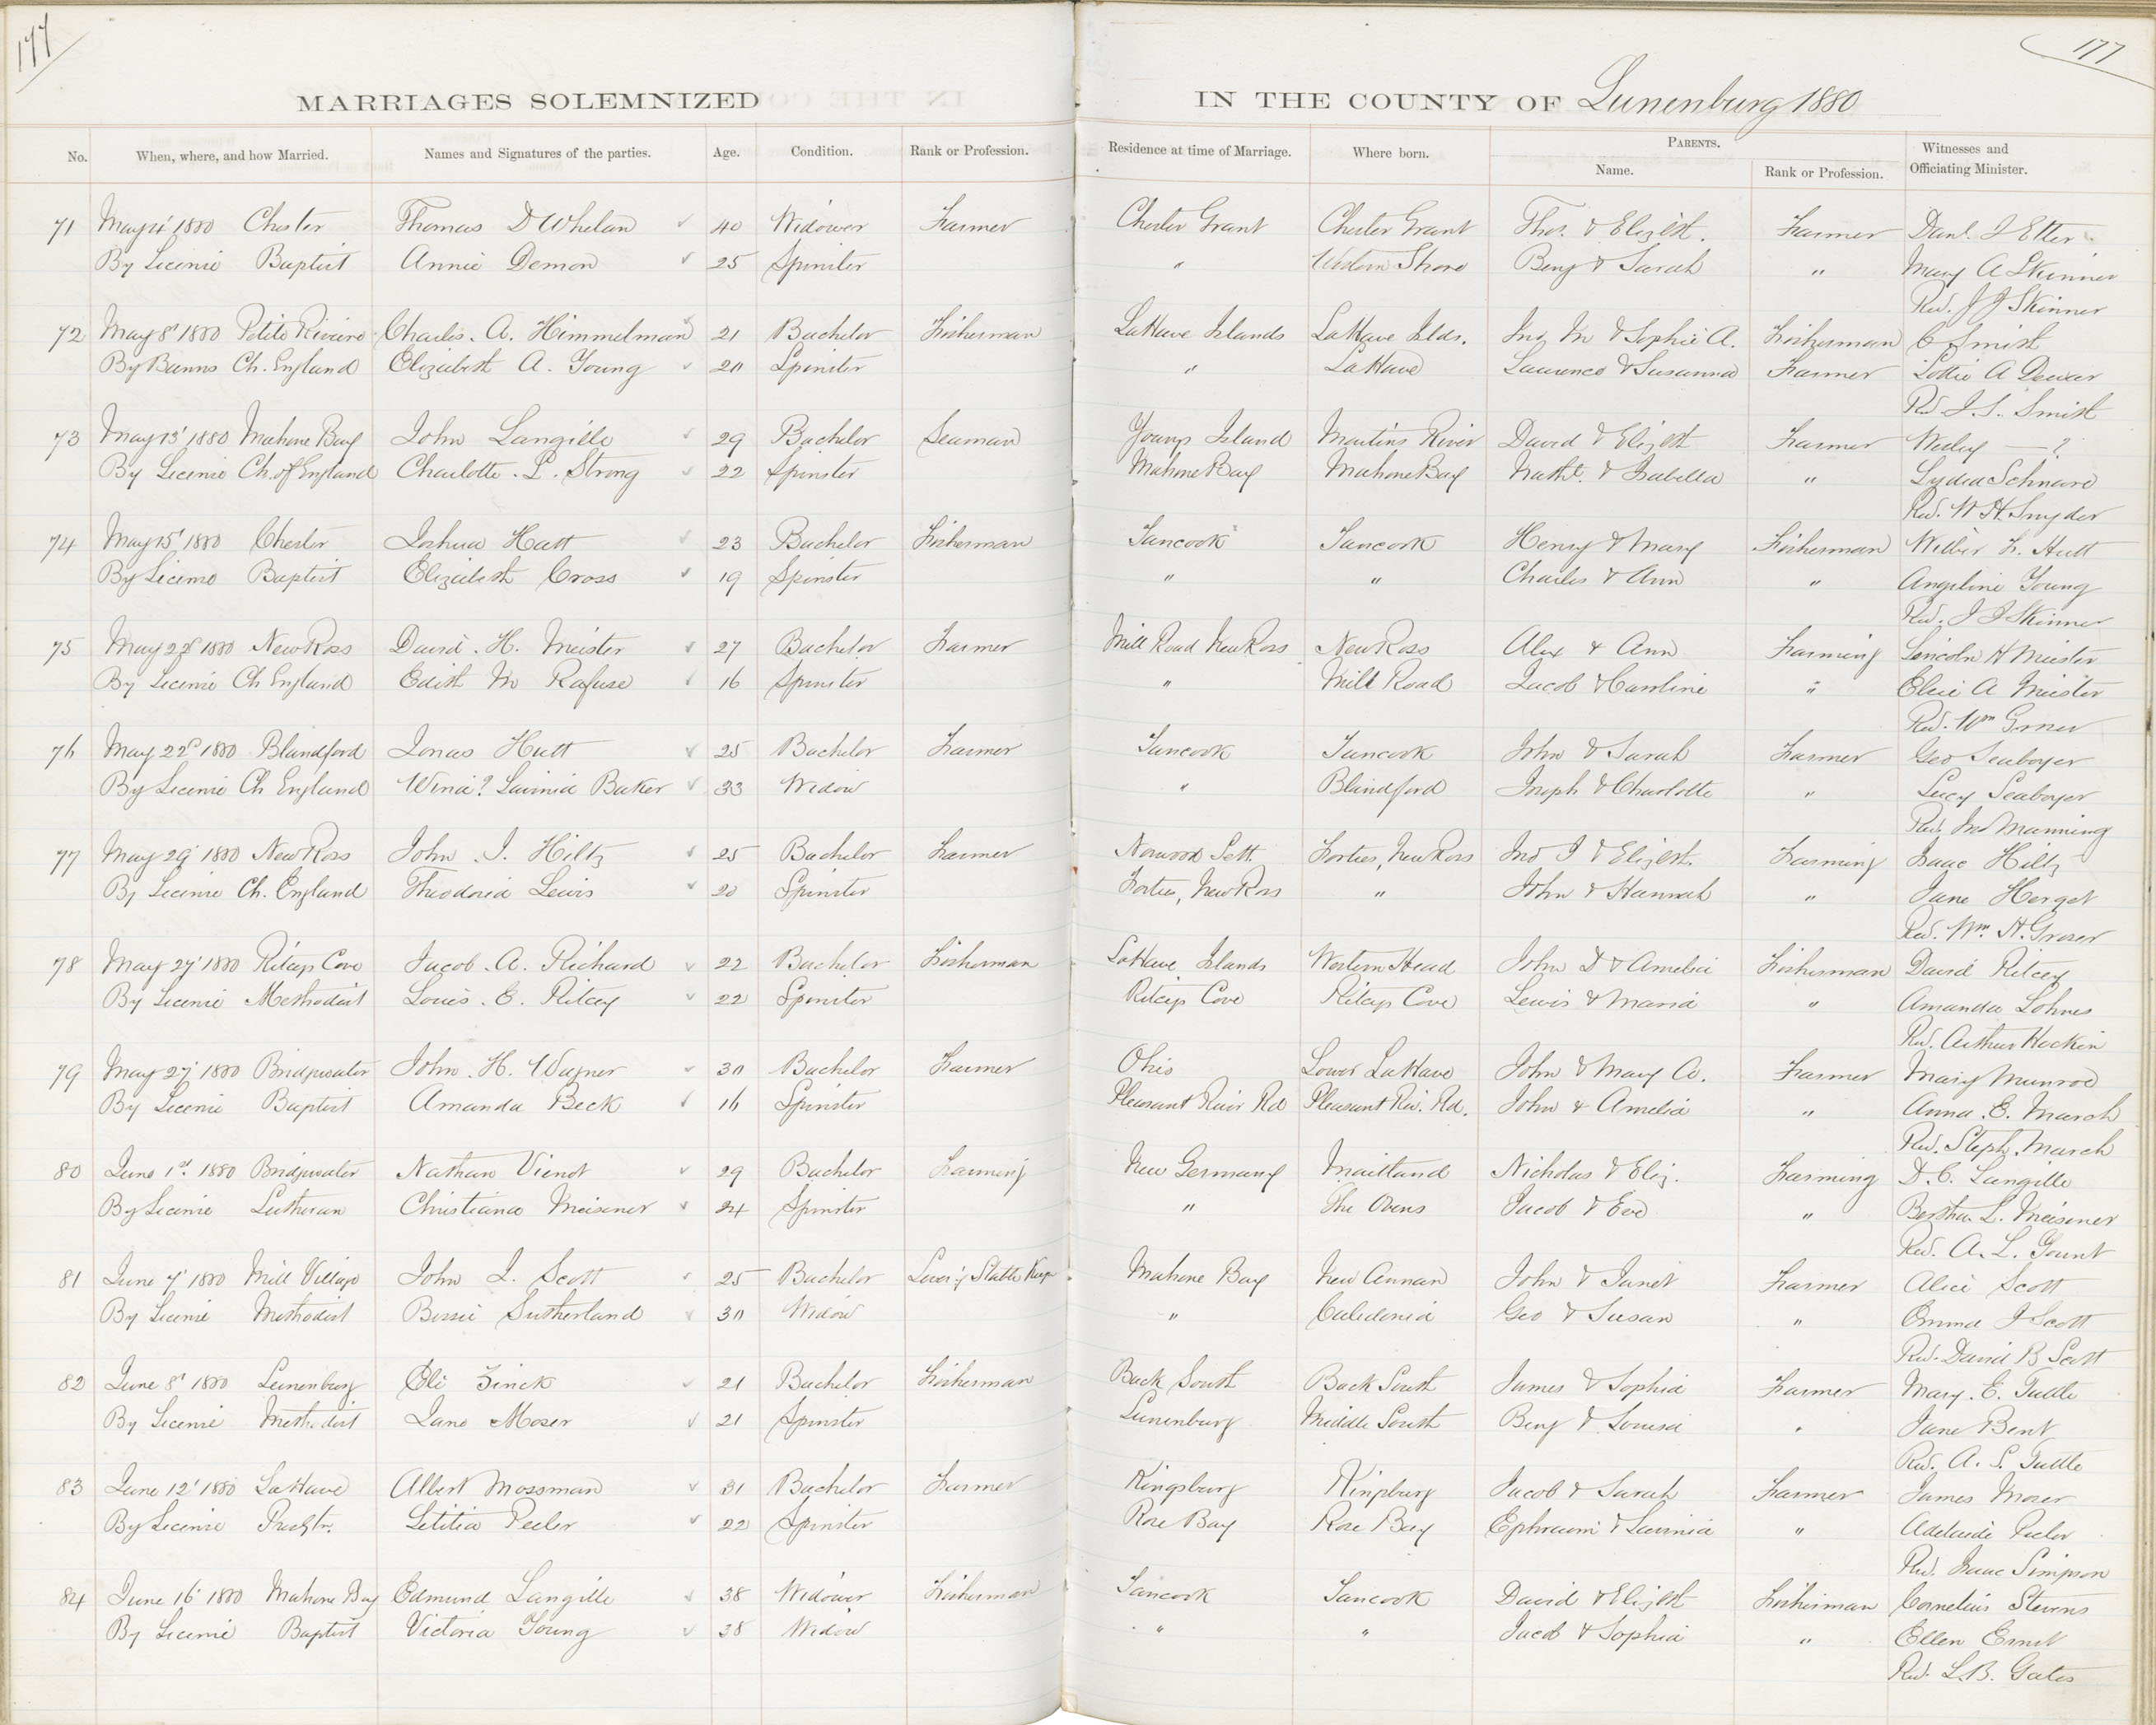 177
177
MARRIAGES SOLEMNIZED IN THE COUNTY OF Lunenburg 1880
No. When, where, and how Married. Names and Signatures of the parties. Age. Condition. Rank or Profession. Residence at time of Marriage. Where born. PARENTS. Name. Rank or Profession. Witnesses and Officiating Minister.
71 May 4' 1880 Chester Thomas D Whelan 40 Widower Farmer Chester Grant Chester Grant Thos. & Elizbth. Farmer Danl. J Etter
By License Baptist Annie Demon 25 Spinster " Western Shore Benj & Sarah " Mary A Skinner
Rev. J J Skinner
72 May 8' 1880 Petite Riviere Charles. A. Himmelman 21 Bachelor Fisherman LaHave Islands LaHave Islds. Jno M & Sophie A. Fisherman C Smith
By Banns Ch. England Elizabeth A. Young 20 Spinster " LaHave Laurence & Susanna Farmer Lottie A Dewar
Rd J. S. Smith
73 May 13' 1880 Mahone Bay John Langille 29 Bachelor Seaman Youngs Island Martins River David & Elizbth Farmer Wesley — ?
By License Ch. of England Charlotte. L. Strong 22 Spinster Mahone Bay Mahone Bay Nathl. & Isabella " Lydia Schnare
Rd. W H. Snyder
74 May 15' 1880 Chester Joshua Hatt 23 Bachelor Fisherman Tancook Tancook Henry & Mary Fisherman Hutt
By License Baptist Elizabeth Cross 19 Spinster " " Charles & Ann " Angeline Young
Rd. J J Skinner
75 May 22d 1880 New Ross David. H. Meister 27 Bachelor Farmer Mill Road New Ross New Ross Alex & Ann Farming Lincoln H Meister
By License Ch England Edith M Rafuse 16 Spinster " Mill Road Jacob & Caroline " Elsie A Meister
Rd. Wm
76 May 22d 1880 Blandford Jonas Hutt 25 Bachelor Farmer Tancook Tancook John & Sarah Farmer Geo Seaboyer
By License Ch England Wina? Lavinia Baker 33 Widow " Blandford Joseph & Charlotte " Lucy Seaboyer
Rd. Jno Manning
77 May 29' 1880 New Ross John. I. Hiltz 25 Bachelor Farmer Norwood Sett. Forties, New Ross Jno I & Elizbth. Farming Isaac Hiltz
By License Ch. England Theodoria Lewis 20 Spinster Forties, New Ross " John & Hannah " Jane Herget
Rd. Wm. H. Groser
78 May 27' 1880 Ritceys Cove Jacob. A. Richard 22 Bachelor Fisherman LaHave Islands Western Head John D & Amelia Fisherman David Ritcey
By License Methodist Louis. E. Ritcey 22 Spinster Ritceys Cove Ritceys Cove Lewis & Maria " Amanda Lohnes
Rd. Arthur Hockin
79 May 27' 1880 Bridgewater John. H. Wagner 30 Bachelor Farmer Ohio Lower LaHave John & Mary A. Farmer Mary Munroe
By License Baptist Amanda Beck 16 Spinster Pleasant River Rd Pleasant Riv. Rd. John & Amelia " Anna. E. March
Rd. Steph. March
80 June 1st. 1880 Bridgewater Nathan Vienot 29 Bachelor Farming New Germany Maitland Nicholas & Eliz. Farming D. C. Langille
By License Lutheran Christiana Meisener 24 Spinster " The Ovens Jacob & Eve " Bertha. L. Meisener
Rd. A. L. Yount
81 June 7' 1880 Mill Village John I. Scott 25 Bachelor Livery Stable Keepr Mahone Bay New Annan John & Janet Farmer Alice Scott
By License Methodist Bessie Sutherland 30 Widow " Caledonia Geo & Susan " Emma J Scott
Rd. David B Scott
82 June 8' 1880 Lunenburg Eli Zinck 21 Bachelor Fisherman Back South Back South James & Sophia Farmer Mary. E. Tuttle
By License Methodist Jane Moser 21 Spinster Lunenburg Middle South Benj & Louisa " Jane Bent
Rd. A. S. Tuttle
83 June 12' 1880 LaHave Albert Mossman 31 Bachelor Farmer Kingsburg Kingsburg Jacob & Sarah Farmer James Moser
By License Presbtn. Letitia Peeler 22 Spinster Rose Bay Rose Bay Ephraim & Lavinia " Adelaide Peeler
Rd. Isaac Simpson
84 June 16' 1880 Mahone Bay Edmund Langille 38 Widower Fisherman Tancook Tancook David & Elizbth Fisherman Cornelius Stevens
By License Baptist Victoria Young 38 Widow " " Jacob & Sophia " Ellen Ernst
Rd. L.B. Gates